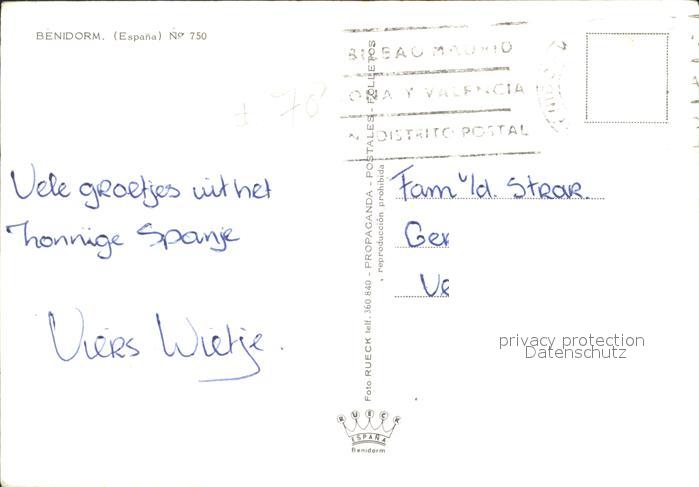 BENIDORM. (España) Nº 750
BILBAO MADRID
Y VALENCIA
DISTRITO POSTAL
± 76
Vele groetjes uit het
zonnige Spanje
Wietje.
Fam v/d. Strar.
Ger
Ve
privacy protection
Datenschutz
Foto RUECK telf. 360.840 - PROPAGANDA - POSTALES - FOLLETOS
reproducción prohibida
RUECK
ESPAÑA
Benidorm